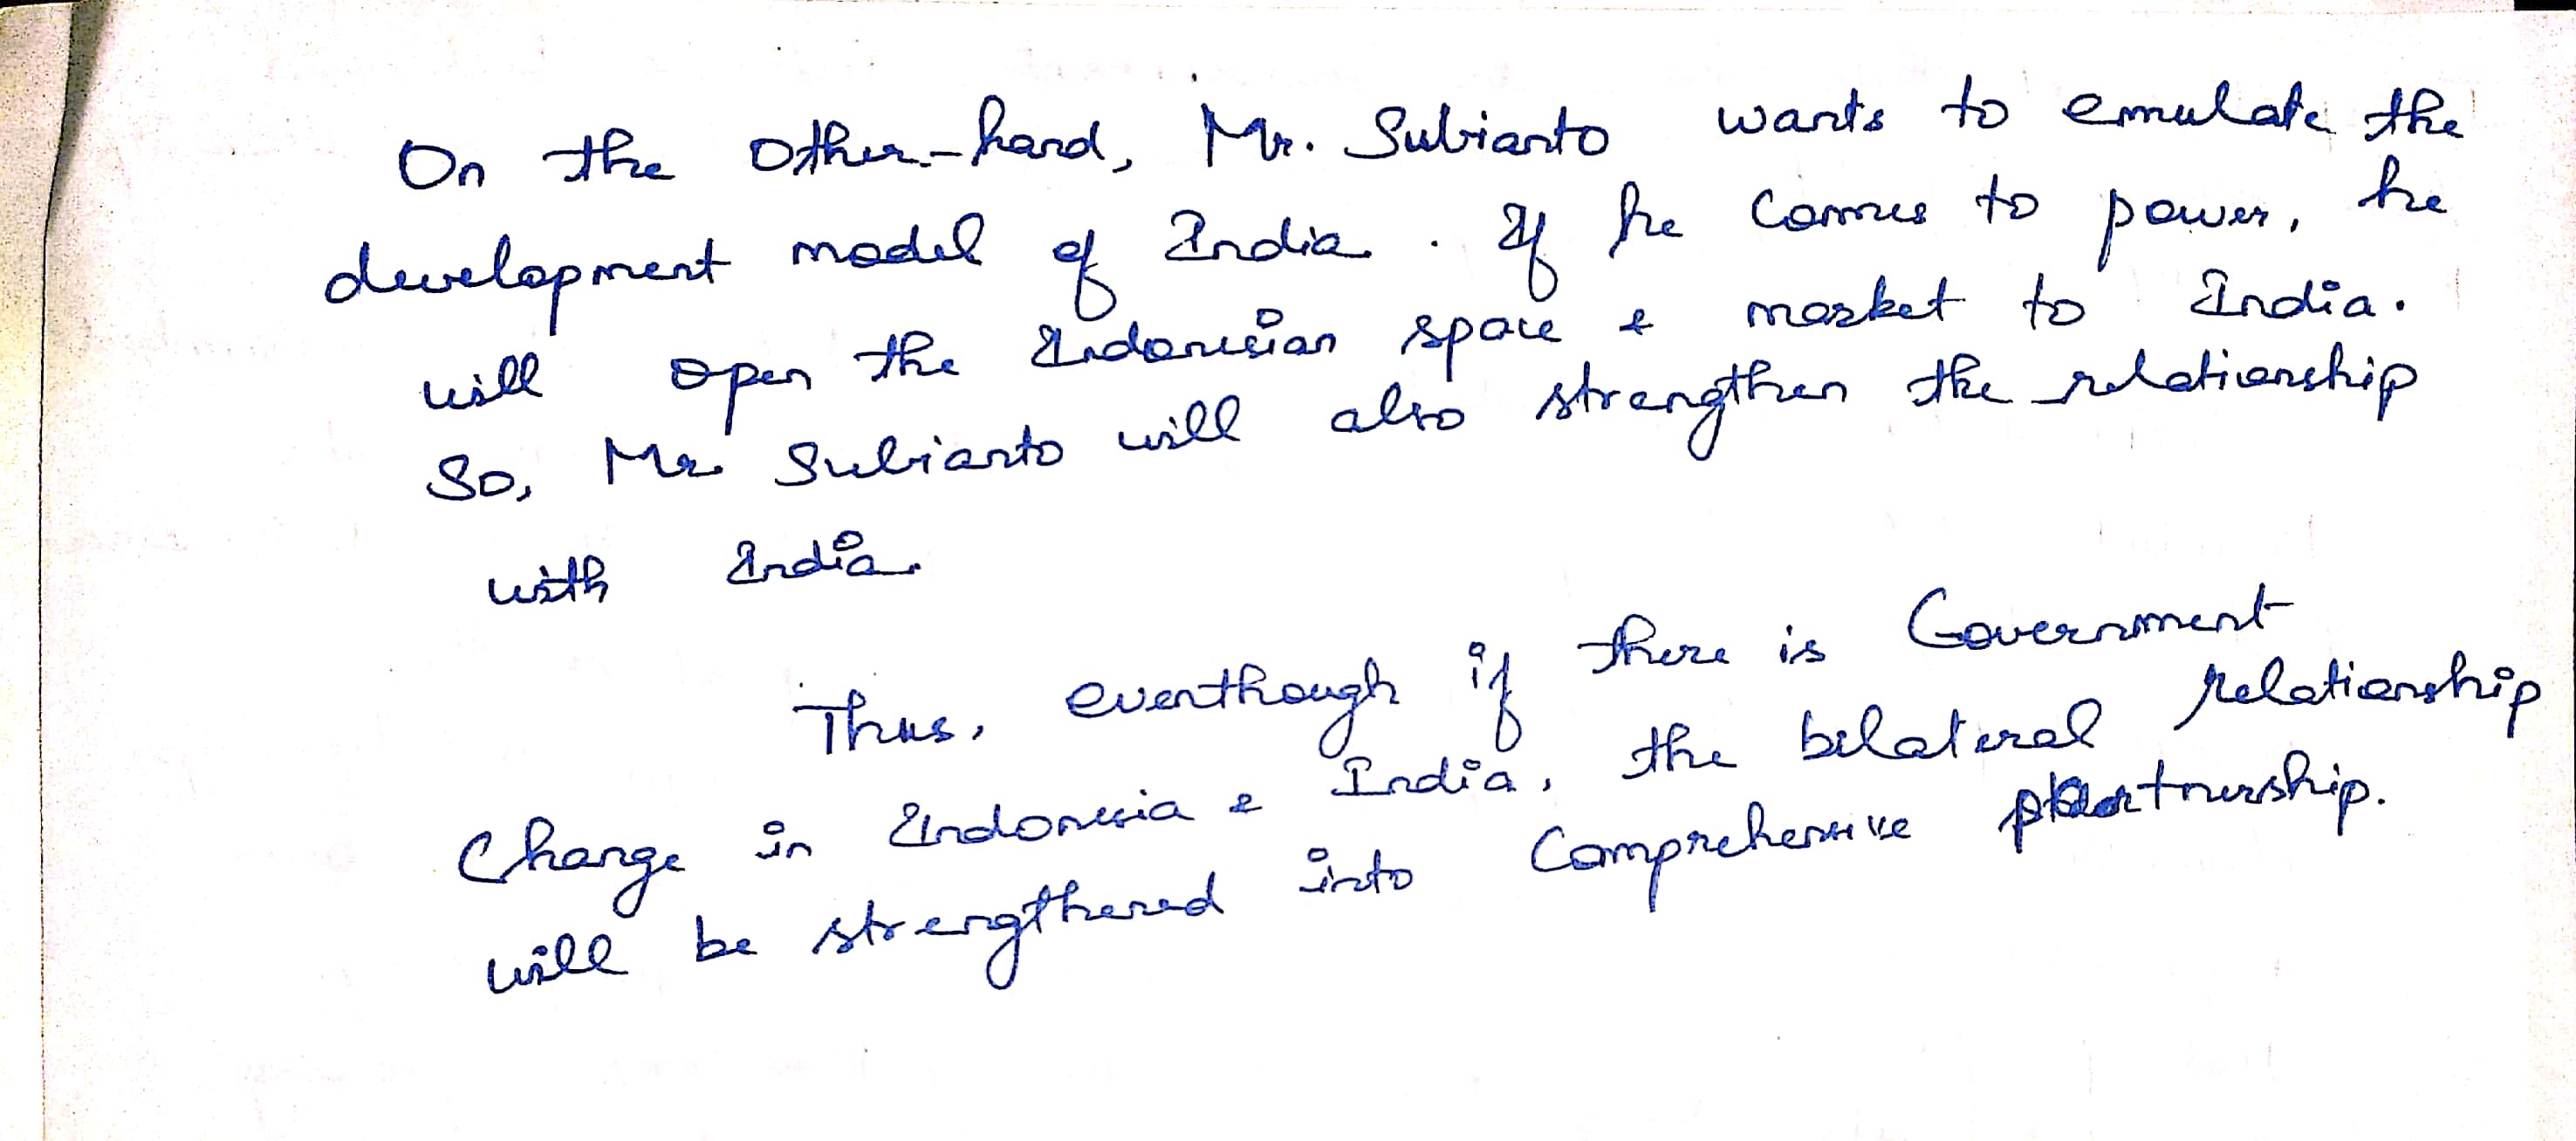 On the Other-hand, Mr. Subianto wants to emulate the
development model of India. If he comes to power, he
will open the Indonesian space & market to India.
So, Mr. Subianto will also strengthen the relationship
with India.
Thus, eventhough if there is Government
Change in Indonesia & India, the bilateral relationship
will be strengthened into Comprehensive partnership.